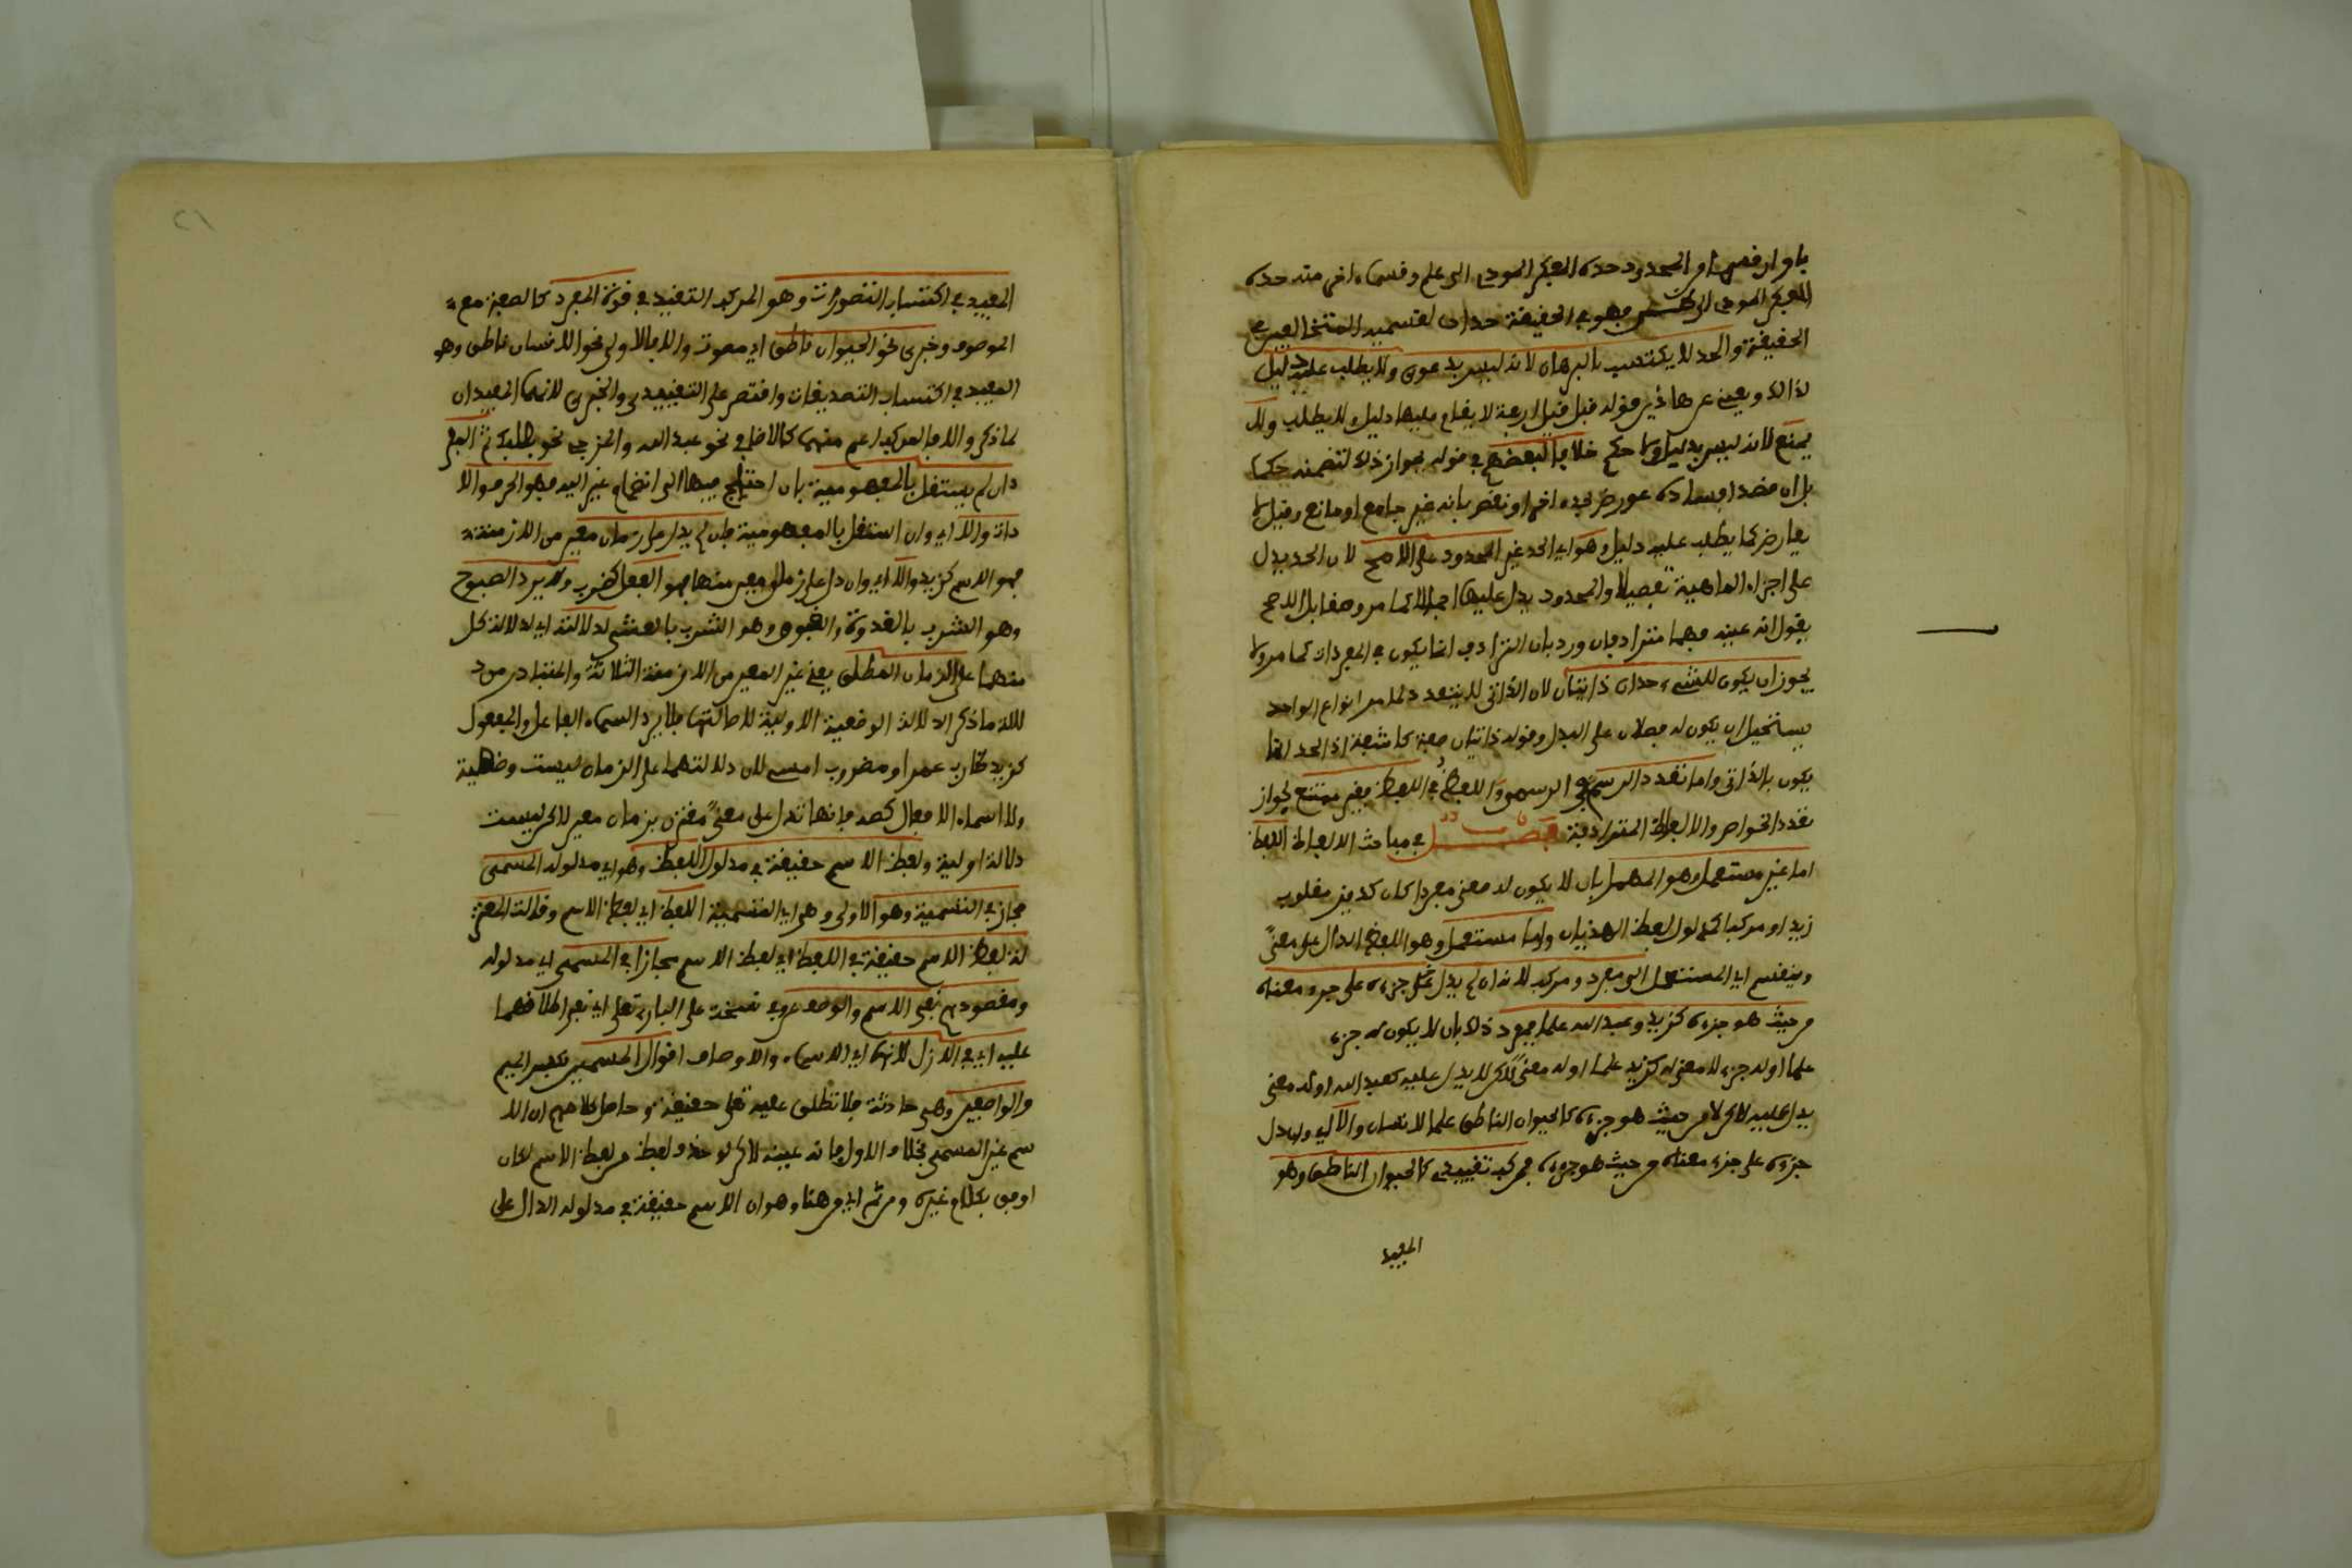 باو ان قسما من المحدود حده الفكر المودي الى علم وقسما اخر منه حده
الفكر المودي الى ظن فهو في الحقيقة حدان لقسميه المتخالفين في
الحقيقة والحد لا يكتسب بالبرهان لانه ليس بدعوى ولا يطلب عليه دليل
لذالك ومن ثم قيل اربعة لا يقام عليها دليل ولا يطلب ولا
يمنع لانه ليس بدليل ولا حكم خلافا لبعضهم في قوله بجواز ذلك لتضمنه حكما
بل ان قصد افساده عورض بحد اخر او نقض بانه غير جامع او مانع وقيل لا
يعارض كما يطلب عليه دليل وهو اي الحد غير المحدود على الاصح لان الحد يدل
على اجزاء الماهية تفصيلا والمحدود يدل عليها اجمالا كما مر ومقابل الاصح
يقول انه عينه فهما مترادفان ورد بان الترادف انما يكون في المفردات كما مر ولا
يجوز ان يكون للشيء حدان ذاتيان لان الذاتي لا يتعدد انواع الواحد
يستحيل ان يكون له فصلان على البدل وقوله ذاتيان صفة كاشفة اذ الحد انما
يكون بالذاتي واما تعدد الرسم في الرسمي واللفظ في اللفظي فغير ممتنع لجواز
تعدد الخواص والالفاظ المترادفة فصل في مباحث الالفاظ اللفظ
اما غير مستعمل وهو المهمل بان لا يكون له معنى مفردا كان كديز مقلوب
زيد او مركبا كمدلول لفظ الهذيان واما مستعمل وهو اللفظ الدال على معنى
وينقسم اي المستعمل الى مفرد ومركب لانه ان لم يدل جزءه على جزء معناه
من حيث هو جزءه كزيد وعبد الله علما فمفرد وذلك بان لا يكون له جزء
علما او له جزء لا معنى له كزيد علما او له معنى لاكن لا يدل عليه كعبد الله او له معنى
يدل عليه لاكن لا من حيث هو جزءه كالحيوان الناطق علما لانسان والا اي وان دل
جزءه على جزء معناه من حيث هو جزءه فمركب تقييدي كالحيوان الناطق وهو
المفيد
٢١
المفيد في اكتساب التصورات وهو المركب التقييدي في قوة المفرد كالصفة مع
الموصوف وخبري نحو الحيوان ناطق اي يموت والا فالاولى نحو الانسان ناطق وهو
المفيد في اكتساب التصديقات واقتصر على التقييدي والخبري لانهما المفيدان
لما ذكر والا فالمركب اعم منهما كالاضافي نحو عبد الله والمزجي نحو بعلبك ثم المفرد
ان لم يستقل بالمفهومية بان احتاج فيها الى انضمام غير اليه فهو الحرف والا
داة والا اي وان استقل بالمفهومية فان لم يدل على زمان معين من الازمنة
فهو الاسم كزيد والا اي وان دل على زمان معين منها فهو الفعل كضرب ولا يرد الصبوح
وهو الشرب بالغدوة والغبوق وهو الشرب بالعشي لدلالته اي لدلالة كل
منهما على الزمان المطلق يعني غير المعين من الازمنة الثلاثة والمتبادر من د
لالة ما ذكر الدلالة الوضعية الاولية لاصالتها فلا يرد اسماء الفاعل والمفعول
كزيد ضارب عمرا ومضروب امس لان دلالتهما على الزمان ليست وضعية
ولا اسماء الافعال كصه فانها تدل على معنى مقترن بزمان معين لاكن ليست
دلالة اولية ولفظ الاسم حقيقة في مدلول اللفظ وهو اي مدلوله المسمى
مجاز في التسمية وهو الاولى وهي اي التسمية اللفظ اي لفظ الاسم وقالت المعتز
لة لفظ الاسم حقيقة في اللفظ اي لفظ الاسم مجازا في المسمى اي مدلوله
ومقصودهم نفي الاسم والوصف عن على الباري تعلى اي نفي اطلاقهما
عليه اي في الازل لانها اي الاسماء والاوصاف اقوال المسمين بكسر الميم
والواصفين وهي حادثة فلا تطلق عليه تعلى حقيقة وحاصل كلامهم ان الا
سم غير المسمى بخلاف الاول فانه عينه لاكن لو حذف لفظ من لفظ الاسم لكان
اوفق بكلام غيره ومن ثم اي من هنا وهو ان الاسم حقيقة في مدلوله الدال على